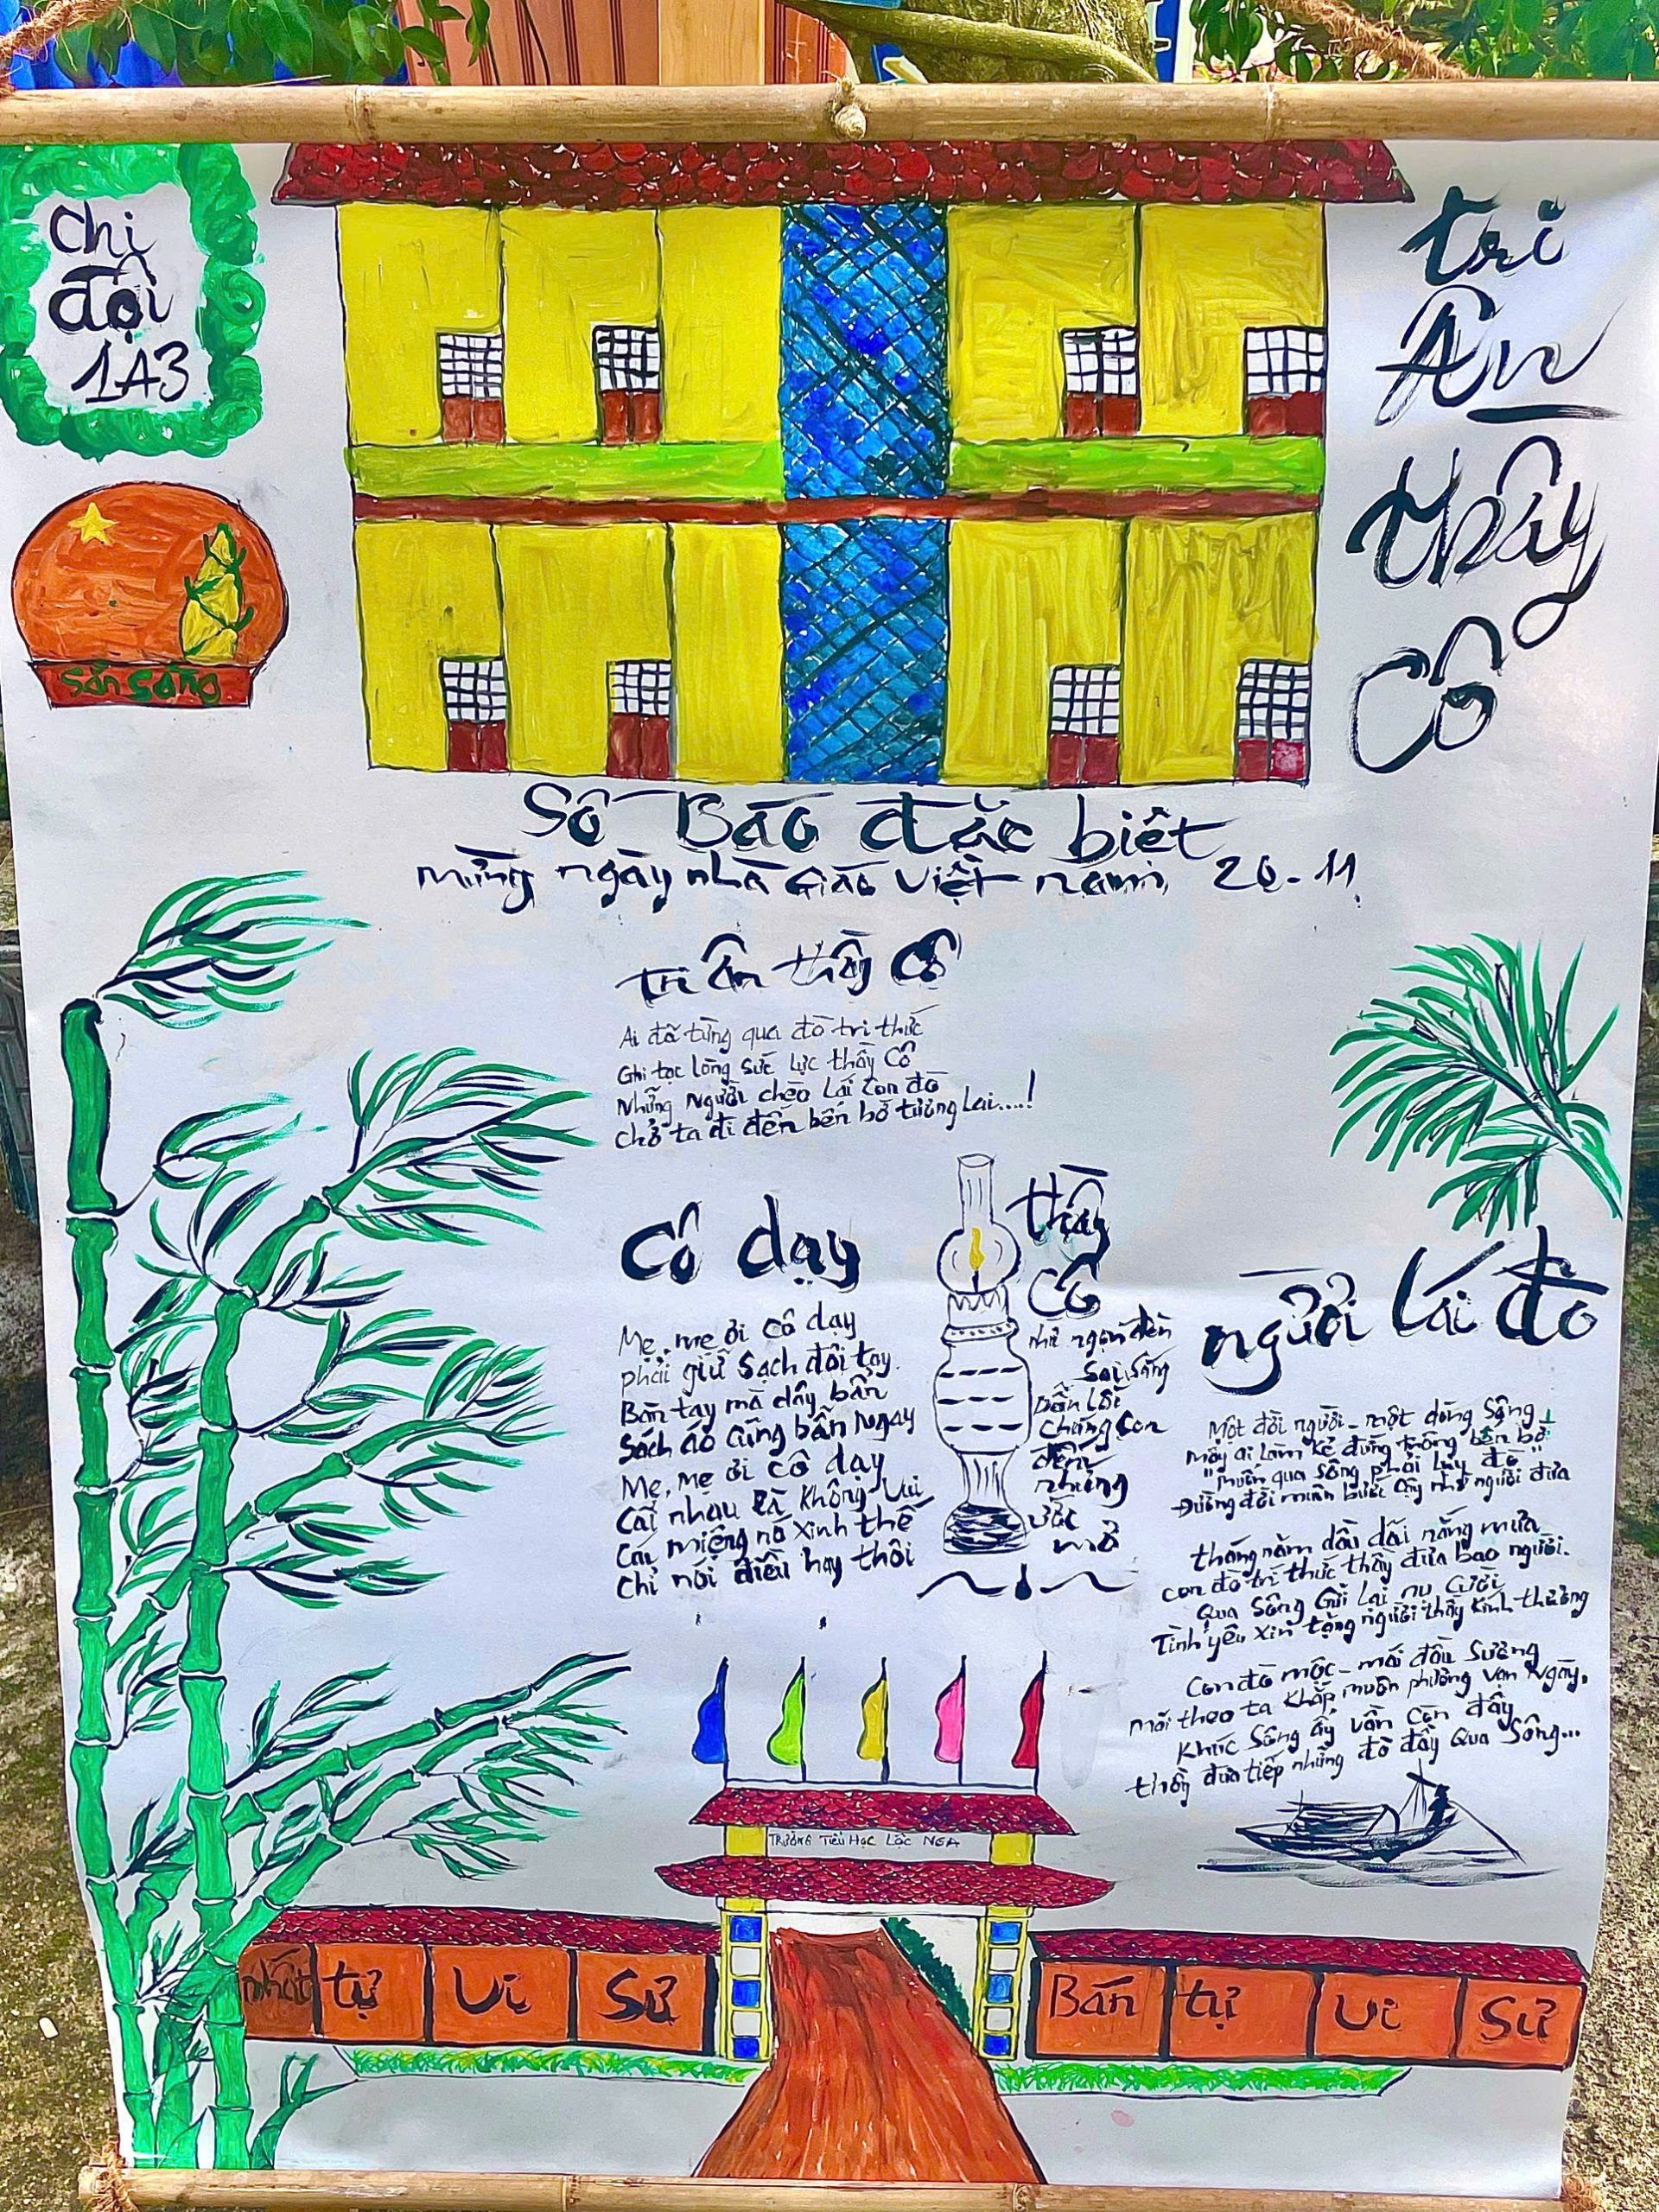 Chi
đội
1A3
Sẵn sàng
tri
Ân
thầy
Cô
Số Báo đặc biệt
mừng ngày nhà Giáo Việt nam 20-11
tri ân thầy Cô
Ai đã từng qua đò tri thức
Ghi tạc lòng sức lực thầy Cô
Những người chèo lái con đò
Chở ta đi đến bến bờ tương lai....!
Cô dạy
Mẹ, mẹ ơi cô dạy
phải giữ sạch đôi tay.
Bàn tay mà dây bẩn
Sách áo cũng bẩn ngay
Mẹ, mẹ ơi cô dạy
Cãi nhau là không vui
Cái miệng nó xinh thế
Chỉ nói điều hay thôi
thầy
Cô
như ngọn đèn
Soi sáng
Dẫn lối
Chúng con
đến
những
ước
mơ
người lái đò
Một đời người - một dòng sông
mấy ai làm kẻ đứng trông bến bờ
"muốn qua sông phải lụy đò"
Đường đời muôn bước cậy nhờ người đưa
tháng năm dầu dãi nắng mưa
con đò trí thức thầy đưa bao người.
Qua sông Gửi lại nụ cười
Tình yêu xin tặng người thầy kính thương
Con đò mộc - mái đầu sương
mãi theo ta khắp muôn phương vạn ngày,
khúc sông ấy vẫn còn đây
thầy đưa tiếp những đò đầy qua sông...
TRƯỜNG TIỂU HỌC LỘC NGA
nhất tự vi sư
Bán tự vi sư